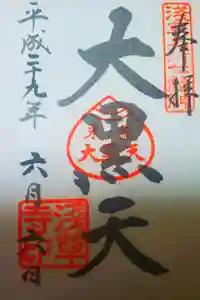 奉拝
大黒天
平成二十九年
六月六日
浅草
寺印